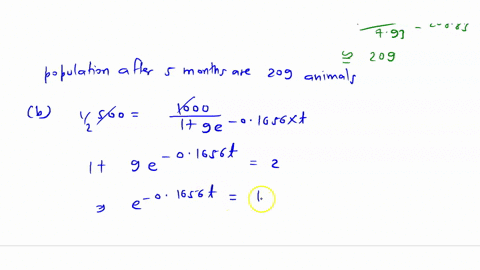 4.93
≈ 209
population after 5 months are 209 animals
(b) 1/2 500 = 1000 / 1+ 9e^-0.1656xt
1+ 9e^-0.1656t = 2
⇒ e^-0.1656t = 1